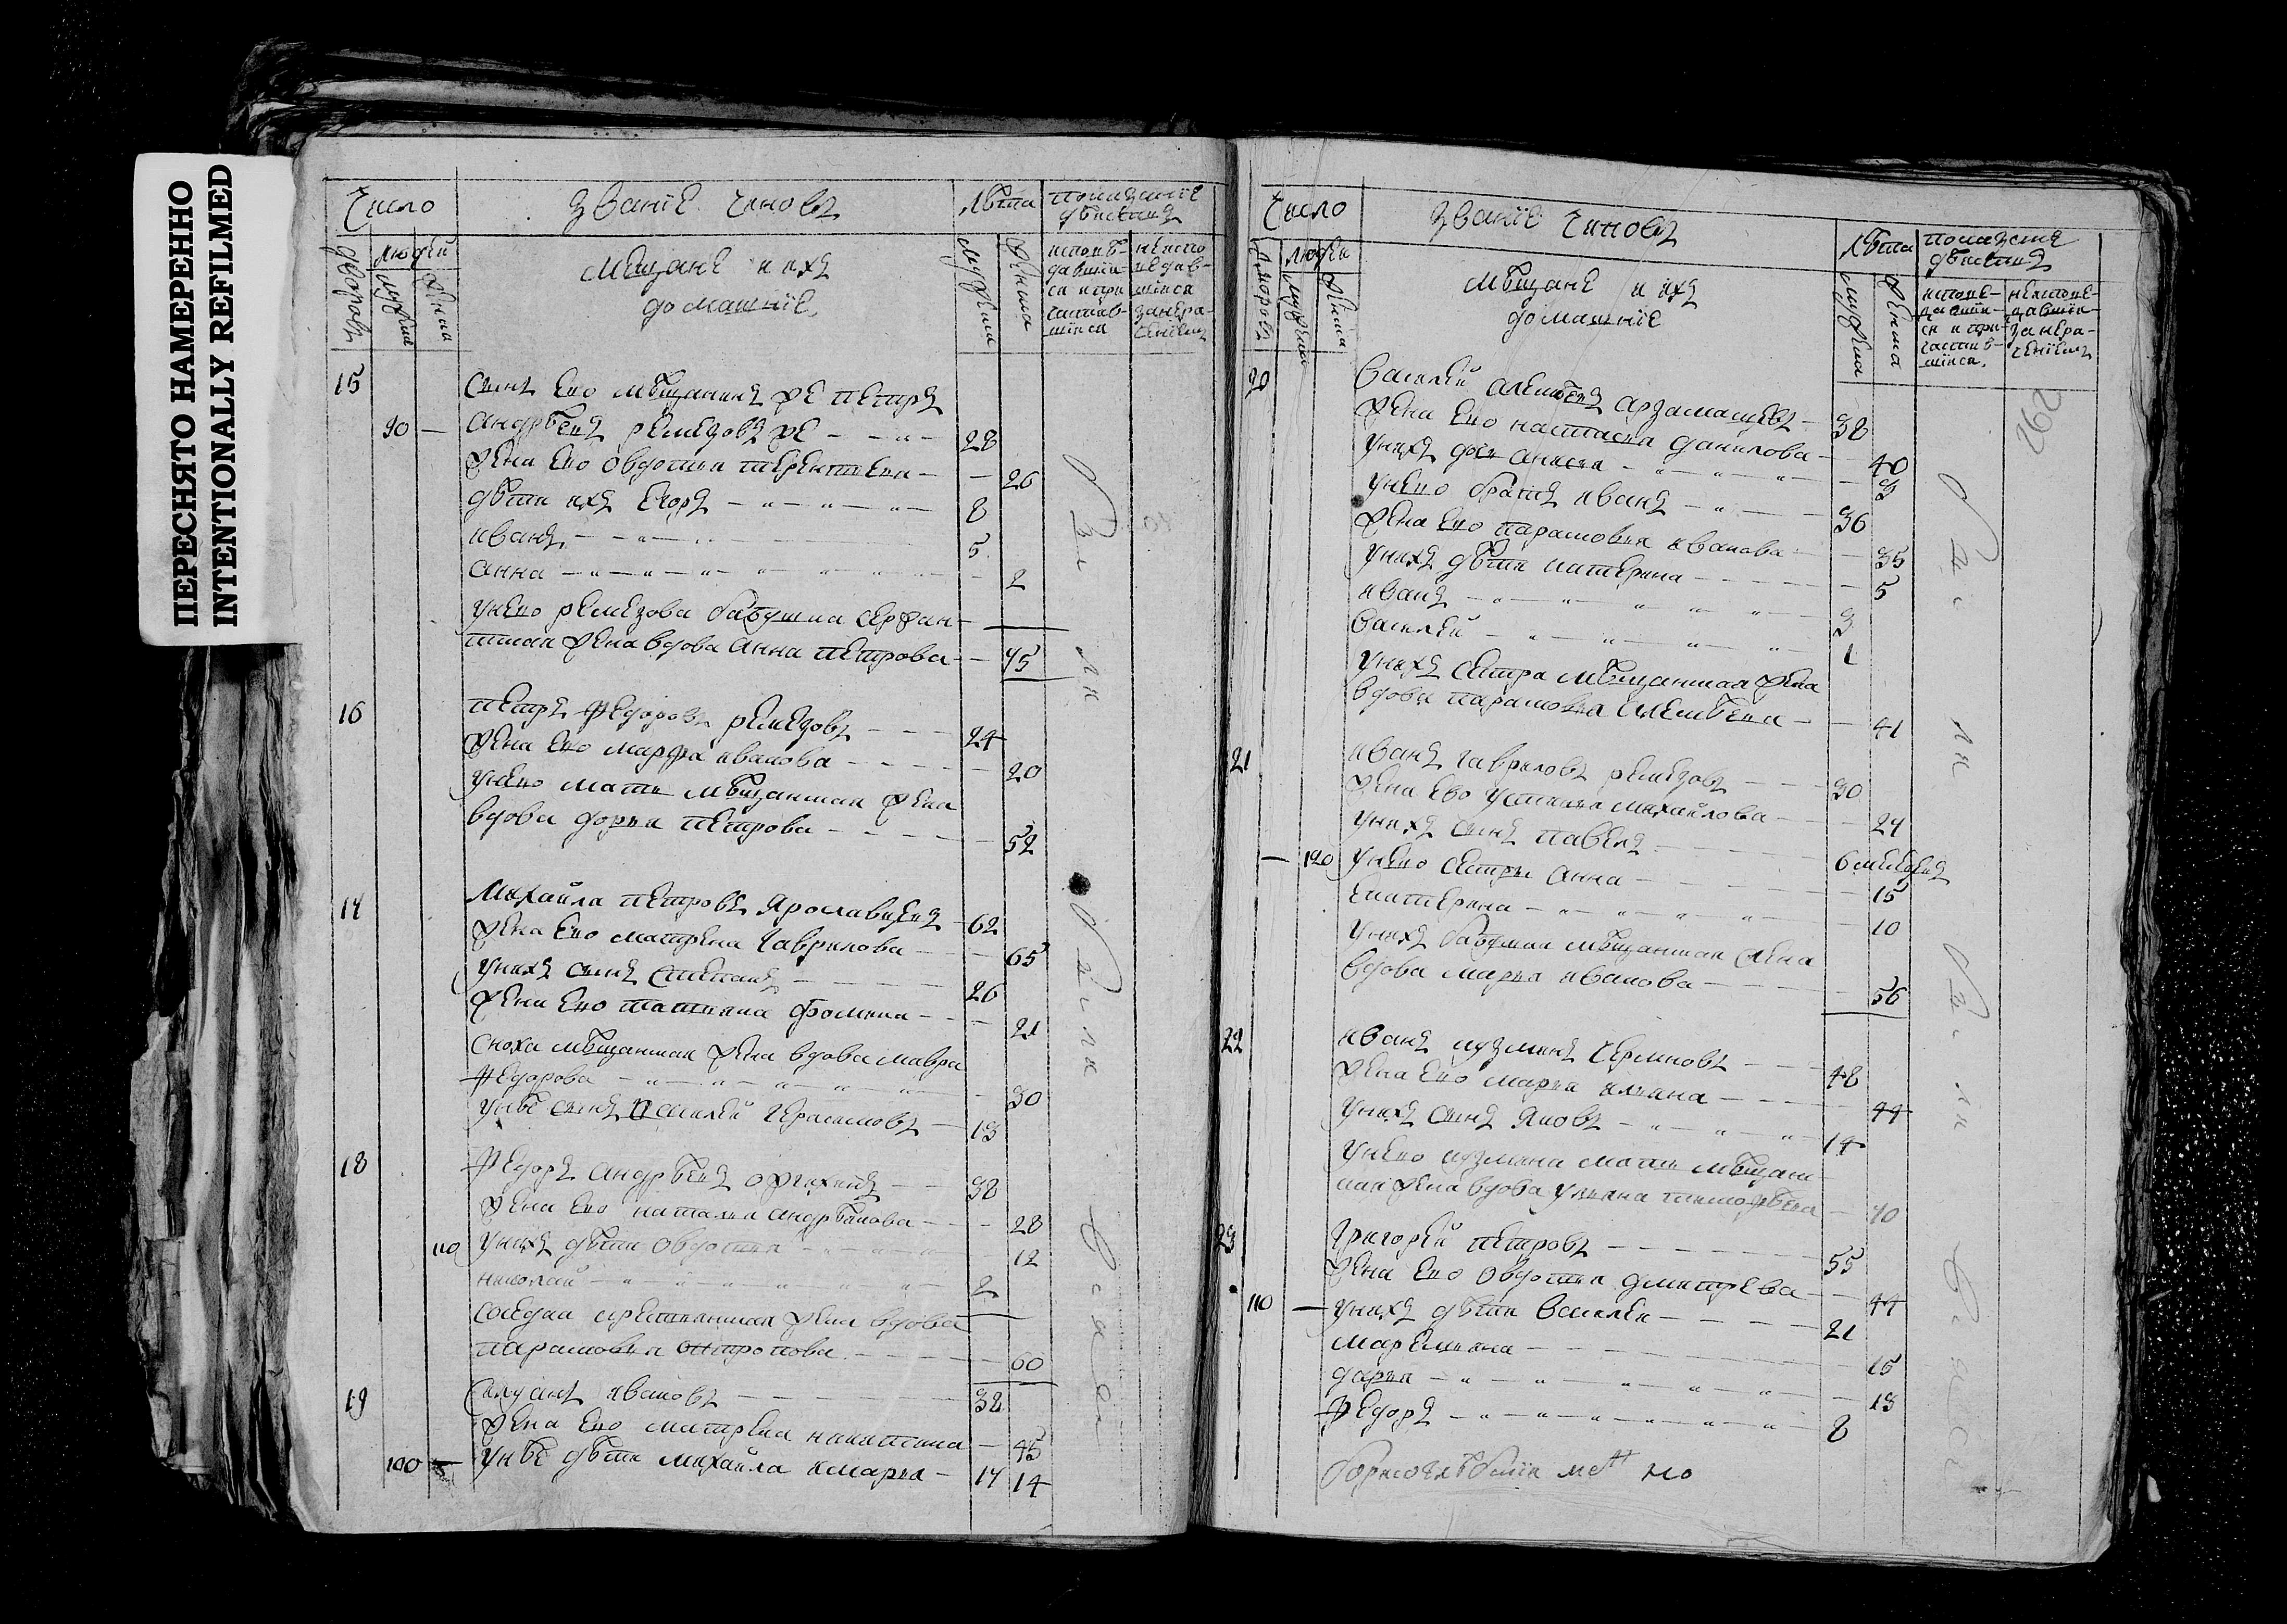 ПЕРЕСНЯТО НАМЕРЕННО
INTENTIONALLY REFILMED
Число
званїе чиновъ
лѣта
показанїе
дѣйства
дворовъ
людей
мужеска
женска
мещане и ихъ
домашнїе
мужеска
женска
исповѣ-
давши-
ся и при
частив-
шїися
неиспо
ведав-
шїися
15
сынъ ево мѣщанинъ же петръ
90 — андрѣевъ ремезовъ же — 28
жена ево овдотья терентьева — 26
дѣти ихъ егоръ — 8
иванъ — 5
анна — 2
у нево ремезова бабушка сержан-
тская жена вдова анна петрова — 75
16 петръ федоровъ ремезовъ — 24
жена ево марфа иванова — 20
у нево мать мѣщанская жена
вдова дарья петрова — 52
17 михайла петровъ ярославцевъ — 62
жена ево матрена гаврилова — 65
у нихъ сынъ степанъ — 26
жена ево татьяна фомина — 21
сноха мѣщанская жена вдова мавра
федорова — 30
у нѣе сынъ василей герасимовъ — 13
18 федоръ андрѣевъ — 38
жена ево наталья андрѣянова — 28
110 у нихъ дѣти овдотья — 12
николай — 2
соседка крестьянская жена вдова
парасковья — 60
19 иванов — 38
жена ево матрена никитина — 45
100 — у нѣе дѣти михайла и марья — 17 14
Число
званїе чиновъ
лѣта
показанїе
дѣйства
дворовъ
людей
мужеска
женска
мѣщане и ихъ
домашнїе
мужеска
женска
исповѣ-
давши-
ся и при-
частив-
шїися
неиспове-
давши-
262
20 василей алексѣевъ арзамасцевъ — 38
жена ево настасья данилова — 40
у нихъ дочь анисья — 3
у нево братъ иванъ — 36
жена ево парасковья иванова — 35
у нихъ дѣти катерина — 5
иванъ — 3
василей — 1
у нихъ сестра мѣщанская жена
вдова парасковья алексѣева — 41
21 иванъ гавриловъ ремезовъ — 30
жена ево устинья михайлова — 24
у нихъ сынъ павелъ — 6 месяцевъ
— 120 у нево сестры анна — 15
екатерина — 10
у нихъ бабушка мѣщанская жена
вдова марья иванова — 56
22 иванъ кузминъ — 48
жена ево марья ильина — 44
у нихъ сынъ яковъ — 14
у нево кузмина мать мѣщан-
ская жена вдова ульяна тимофѣева — 70
23 григорей петровъ — 55
жена ево овдотья дмитрева — 44
110 — у нихъ дѣти василей — 21
маремьяна — 15
дарья — 13
федоръ — 8